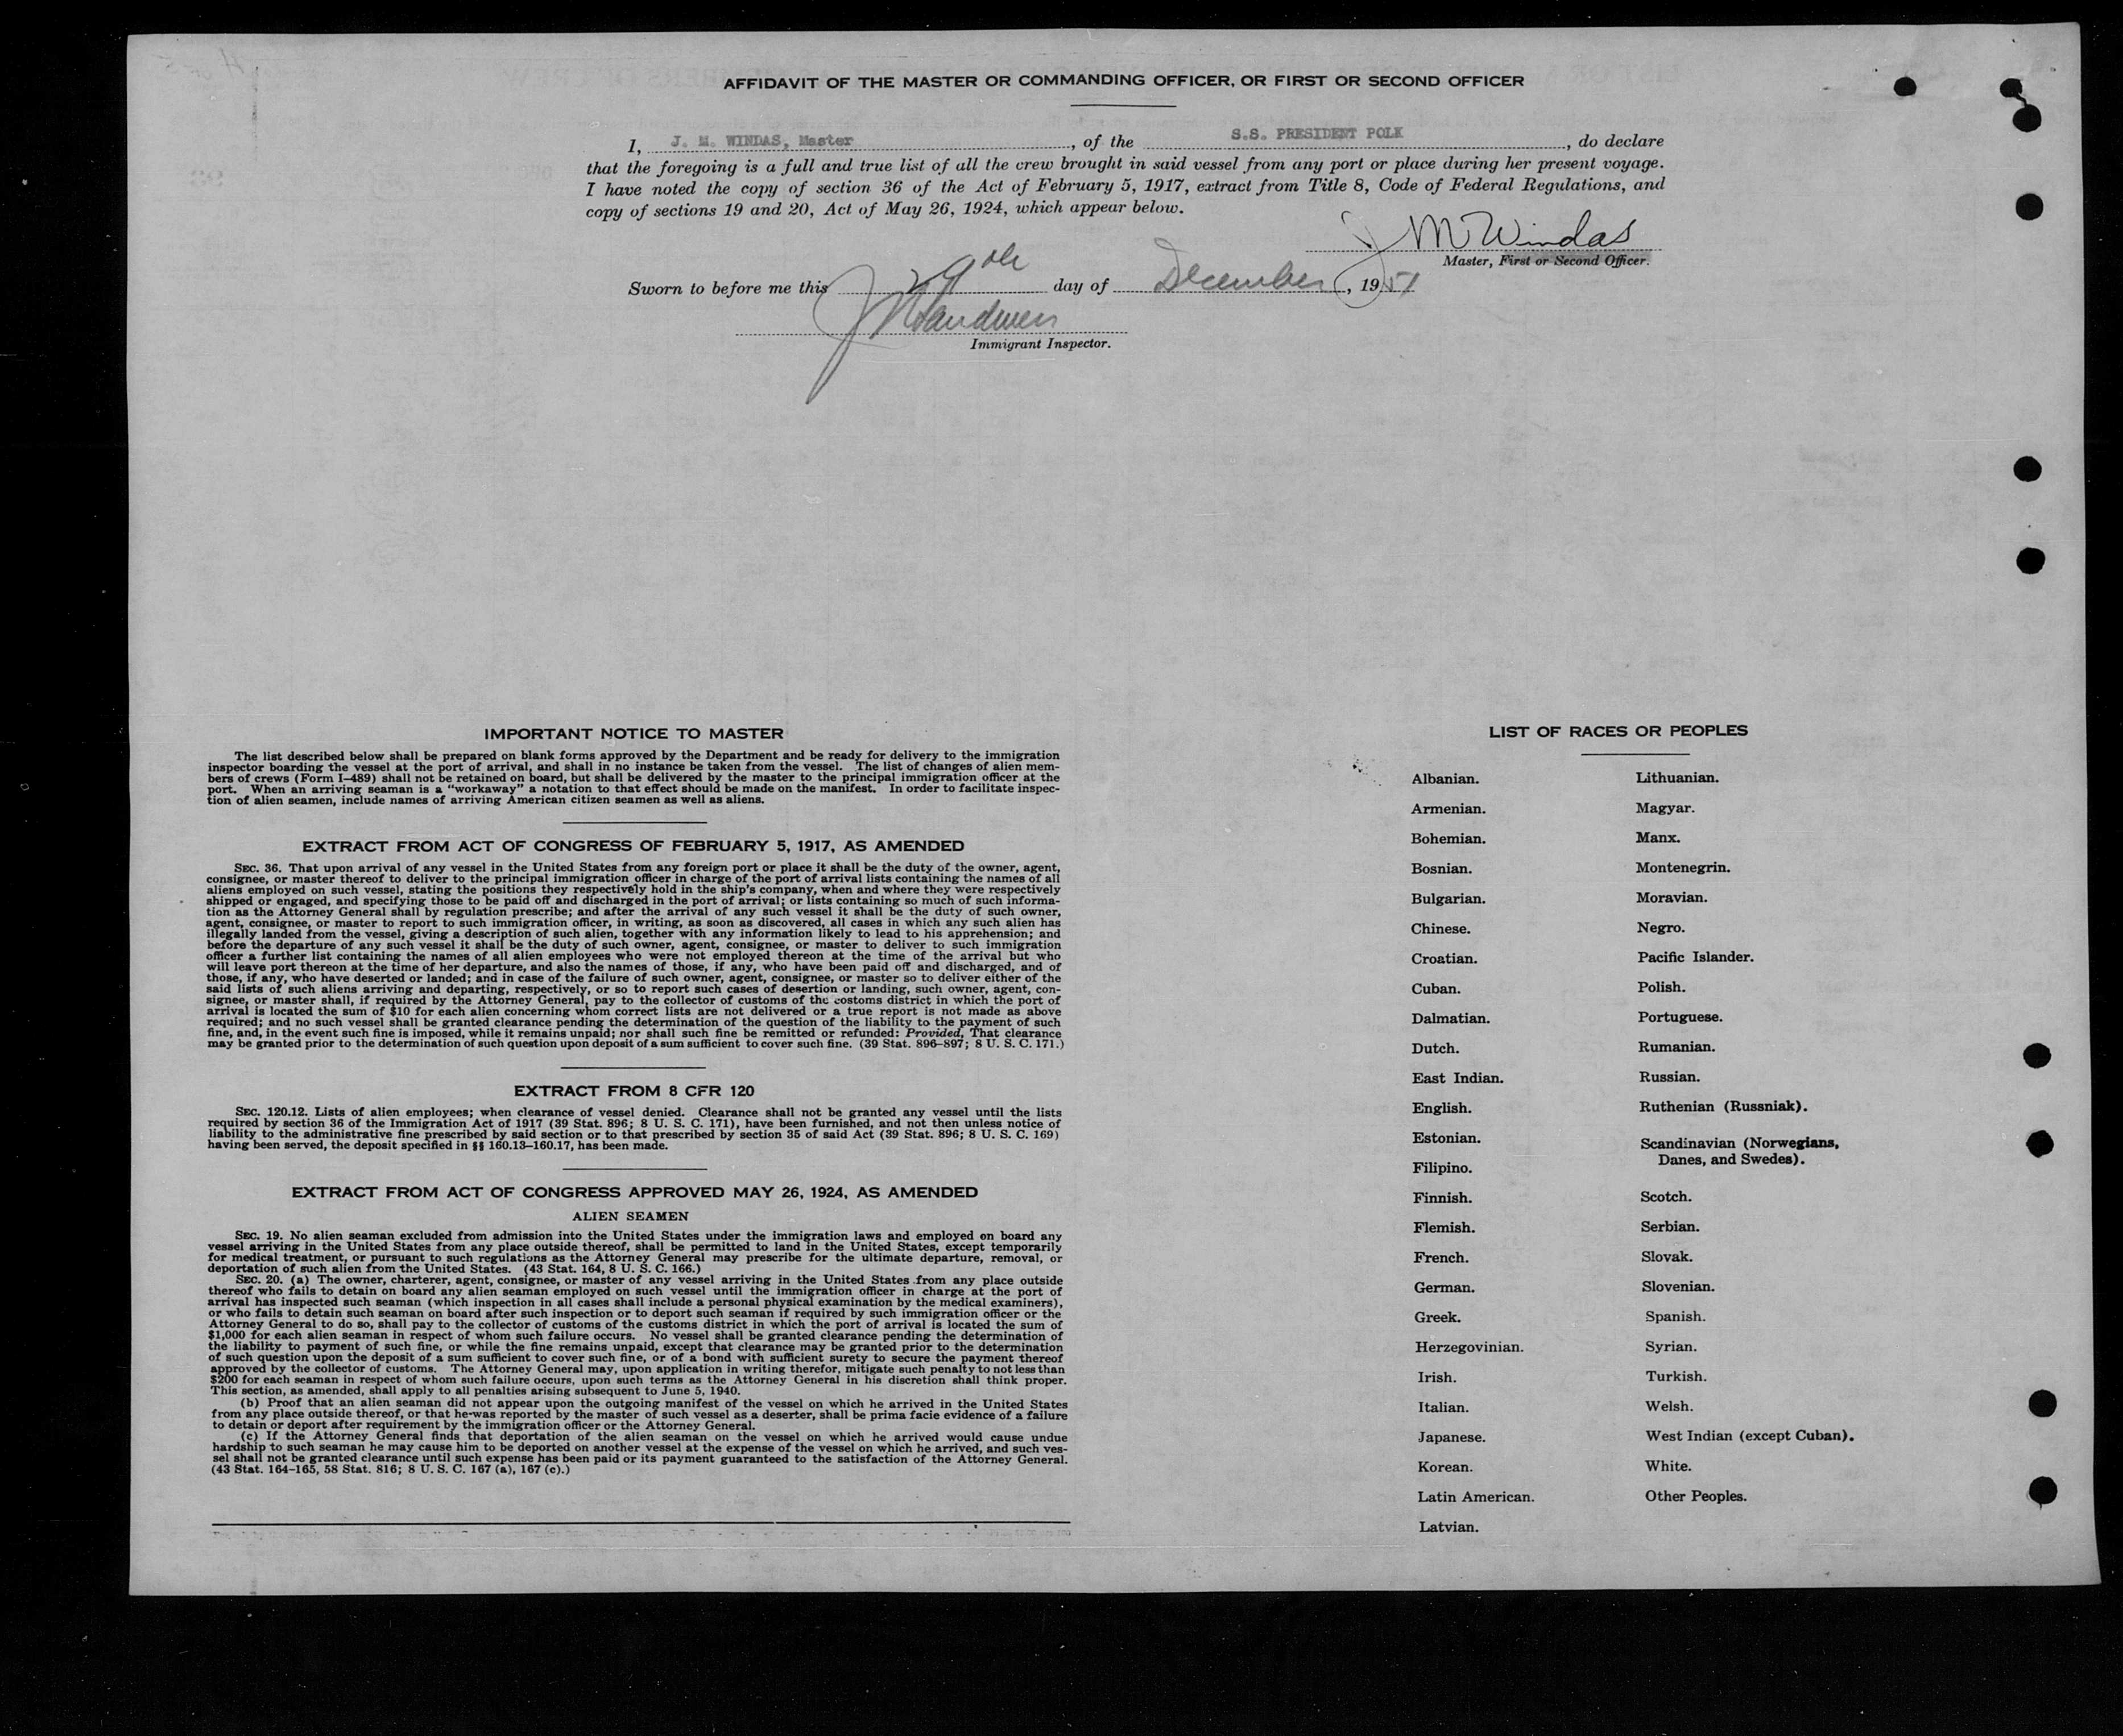 AFFIDAVIT OF THE MASTER OR COMMANDING OFFICER, OR FIRST OR SECOND OFFICER
I, J. M. WINDAS, Master, of the S.S. PRESIDENT POLK, do declare
that the foregoing is a full and true list of all the crew brought in said vessel from any port or place during her present voyage.
I have noted the copy of section 36 of the Act of February 5, 1917, extract from Title 8, Code of Federal Regulations, and
copy of sections 19 and 20, Act of May 26, 1924, which appear below.
J M Windas
Master, First or Second Officer.
Sworn to before me this 29th day of December, 1951
Immigrant Inspector.
IMPORTANT NOTICE TO MASTER
The list described below shall be prepared on blank forms approved by the Department and be ready for delivery to the immigration
inspector boarding the vessel at the port of arrival, and shall in no instance be taken from the vessel. The list of changes of alien mem-
bers of crews (Form I–489) shall not be retained on board, but shall be delivered by the master to the principal immigration officer at the
port. When an arriving seaman is a “workaway” a notation to that effect should be made on the manifest. In order to facilitate inspec-
tion of alien seamen, include names of arriving American citizen seamen as well as aliens.
EXTRACT FROM ACT OF CONGRESS OF FEBRUARY 5, 1917, AS AMENDED
SEC. 36. That upon arrival of any vessel in the United States from any foreign port or place it shall be the duty of the owner, agent,
consignee, or master thereof to deliver to the principal immigration officer in charge of the port of arrival lists containing the names of all
aliens employed on such vessel, stating the positions they respectively hold in the ship's company, when and where they were respectively
shipped or engaged, and specifying those to be paid off and discharged in the port of arrival; or lists containing so much of such informa-
tion as the Attorney General shall by regulation prescribe; and after the arrival of any such vessel it shall be the duty of such owner,
agent, consignee, or master to report to such immigration officer, in writing, as soon as discovered, all cases in which any such alien has
illegally landed from the vessel, giving a description of such alien, together with any information likely to lead to his apprehension; and
before the departure of any such vessel it shall be the duty of such owner, agent, consignee, or master to deliver to such immigration
officer a further list containing the names of all alien employees who were not employed thereon at the time of the arrival but who
will leave port thereon at the time of her departure, and also the names of those, if any, who have been paid off and discharged, and of
those, if any, who have deserted or landed; and in case of the failure of such owner, agent, consignee, or master so to deliver either of the
said lists of such aliens arriving and departing, respectively, or so to report such cases of desertion or landing, such owner, agent, con-
signee, or master shall, if required by the Attorney General, pay to the collector of customs of the costoms district in which the port of
arrival is located the sum of $10 for each alien concerning whom correct lists are not delivered or a true report is not made as above
required; and no such vessel shall be granted clearance pending the determination of the question of the liability to the payment of such
fine, and, in the event such fine is imposed, while it remains unpaid; nor shall such fine be remitted or refunded: Provided, That clearance
may be granted prior to the determination of such question upon deposit of a sum sufficient to cover such fine. (39 Stat. 896–897; 8 U. S. C. 171.)
EXTRACT FROM 8 CFR 120
SEC. 120.12. Lists of alien employees; when clearance of vessel denied. Clearance shall not be granted any vessel until the lists
required by section 36 of the Immigration Act of 1917 (39 Stat. 896; 8 U. S. C. 171), have been furnished, and not then unless notice of
liability to the administrative fine prescribed by said section or to that prescribed by section 35 of said Act (39 Stat. 896; 8 U. S. C. 169)
having been served, the deposit specified in §§ 160.13–160.17, has been made.
EXTRACT FROM ACT OF CONGRESS APPROVED MAY 26, 1924, AS AMENDED
ALIEN SEAMEN
SEC. 19. No alien seaman excluded from admission into the United States under the immigration laws and employed on board any
vessel arriving in the United States from any place outside thereof, shall be permitted to land in the United States, except temporarily
for medical treatment, or pursuant to such regulations as the Attorney General may prescribe for the ultimate departure, removal, or
deportation of such alien from the United States. (43 Stat. 164, 8 U. S. C. 166.)
SEC. 20. (a) The owner, charterer, agent, consignee, or master of any vessel arriving in the United States from any place outside
thereof who fails to detain on board any alien seaman employed on such vessel until the immigration officer in charge at the port of
arrival has inspected such seaman (which inspection in all cases shall include a personal physical examination by the medical examiners),
or who fails to detain such seaman on board after such inspection or to deport such seaman if required by such immigration officer or the
Attorney General to do so, shall pay to the collector of customs of the customs district in which the port of arrival is located the sum of
$1,000 for each alien seaman in respect of whom such failure occurs. No vessel shall be granted clearance pending the determination of
the liability to payment of such fine, or while the fine remains unpaid, except that clearance may be granted prior to the determination
of such question upon the deposit of a sum sufficient to cover such fine, or of a bond with sufficient surety to secure the payment thereof
approved by the collector of customs. The Attorney General may, upon application in writing therefor, mitigate such penalty to not less than
$200 for each seaman in respect of whom such failure occurs, upon such terms as the Attorney General in his discretion shall think proper.
This section, as amended, shall apply to all penalties arising subsequent to June 5, 1940.
(b) Proof that an alien seaman did not appear upon the outgoing manifest of the vessel on which he arrived in the United States
from any place outside thereof, or that he was reported by the master of such vessel as a deserter, shall be prima facie evidence of a failure
to detain or deport after requirement by the immigration officer or the Attorney General.
(c) If the Attorney General finds that deportation of the alien seaman on the vessel on which he arrived would cause undue
hardship to such seaman he may cause him to be deported on another vessel at the expense of the vessel on which he arrived, and such ves-
sel shall not be granted clearance until such expense has been paid or its payment guaranteed to the satisfaction of the Attorney General.
(43 Stat. 164–165, 58 Stat. 816; 8 U. S. C. 167 (a), 167 (c).)
LIST OF RACES OR PEOPLES
Albanian.
Armenian.
Bohemian.
Bosnian.
Bulgarian.
Chinese.
Croatian.
Cuban.
Dalmatian.
Dutch.
East Indian.
English.
Estonian.
Filipino.
Finnish.
Flemish.
French.
German.
Greek.
Herzegovinian.
Irish.
Italian.
Japanese.
Korean.
Latin American.
Latvian.
Lithuanian.
Magyar.
Manx.
Montenegrin.
Moravian.
Negro.
Pacific Islander.
Polish.
Portuguese.
Rumanian.
Russian.
Ruthenian (Russniak).
Scandinavian (Norwegians,
Danes, and Swedes).
Scotch.
Serbian.
Slovak.
Slovenian.
Spanish.
Syrian.
Turkish.
Welsh.
West Indian (except Cuban).
White.
Other Peoples.